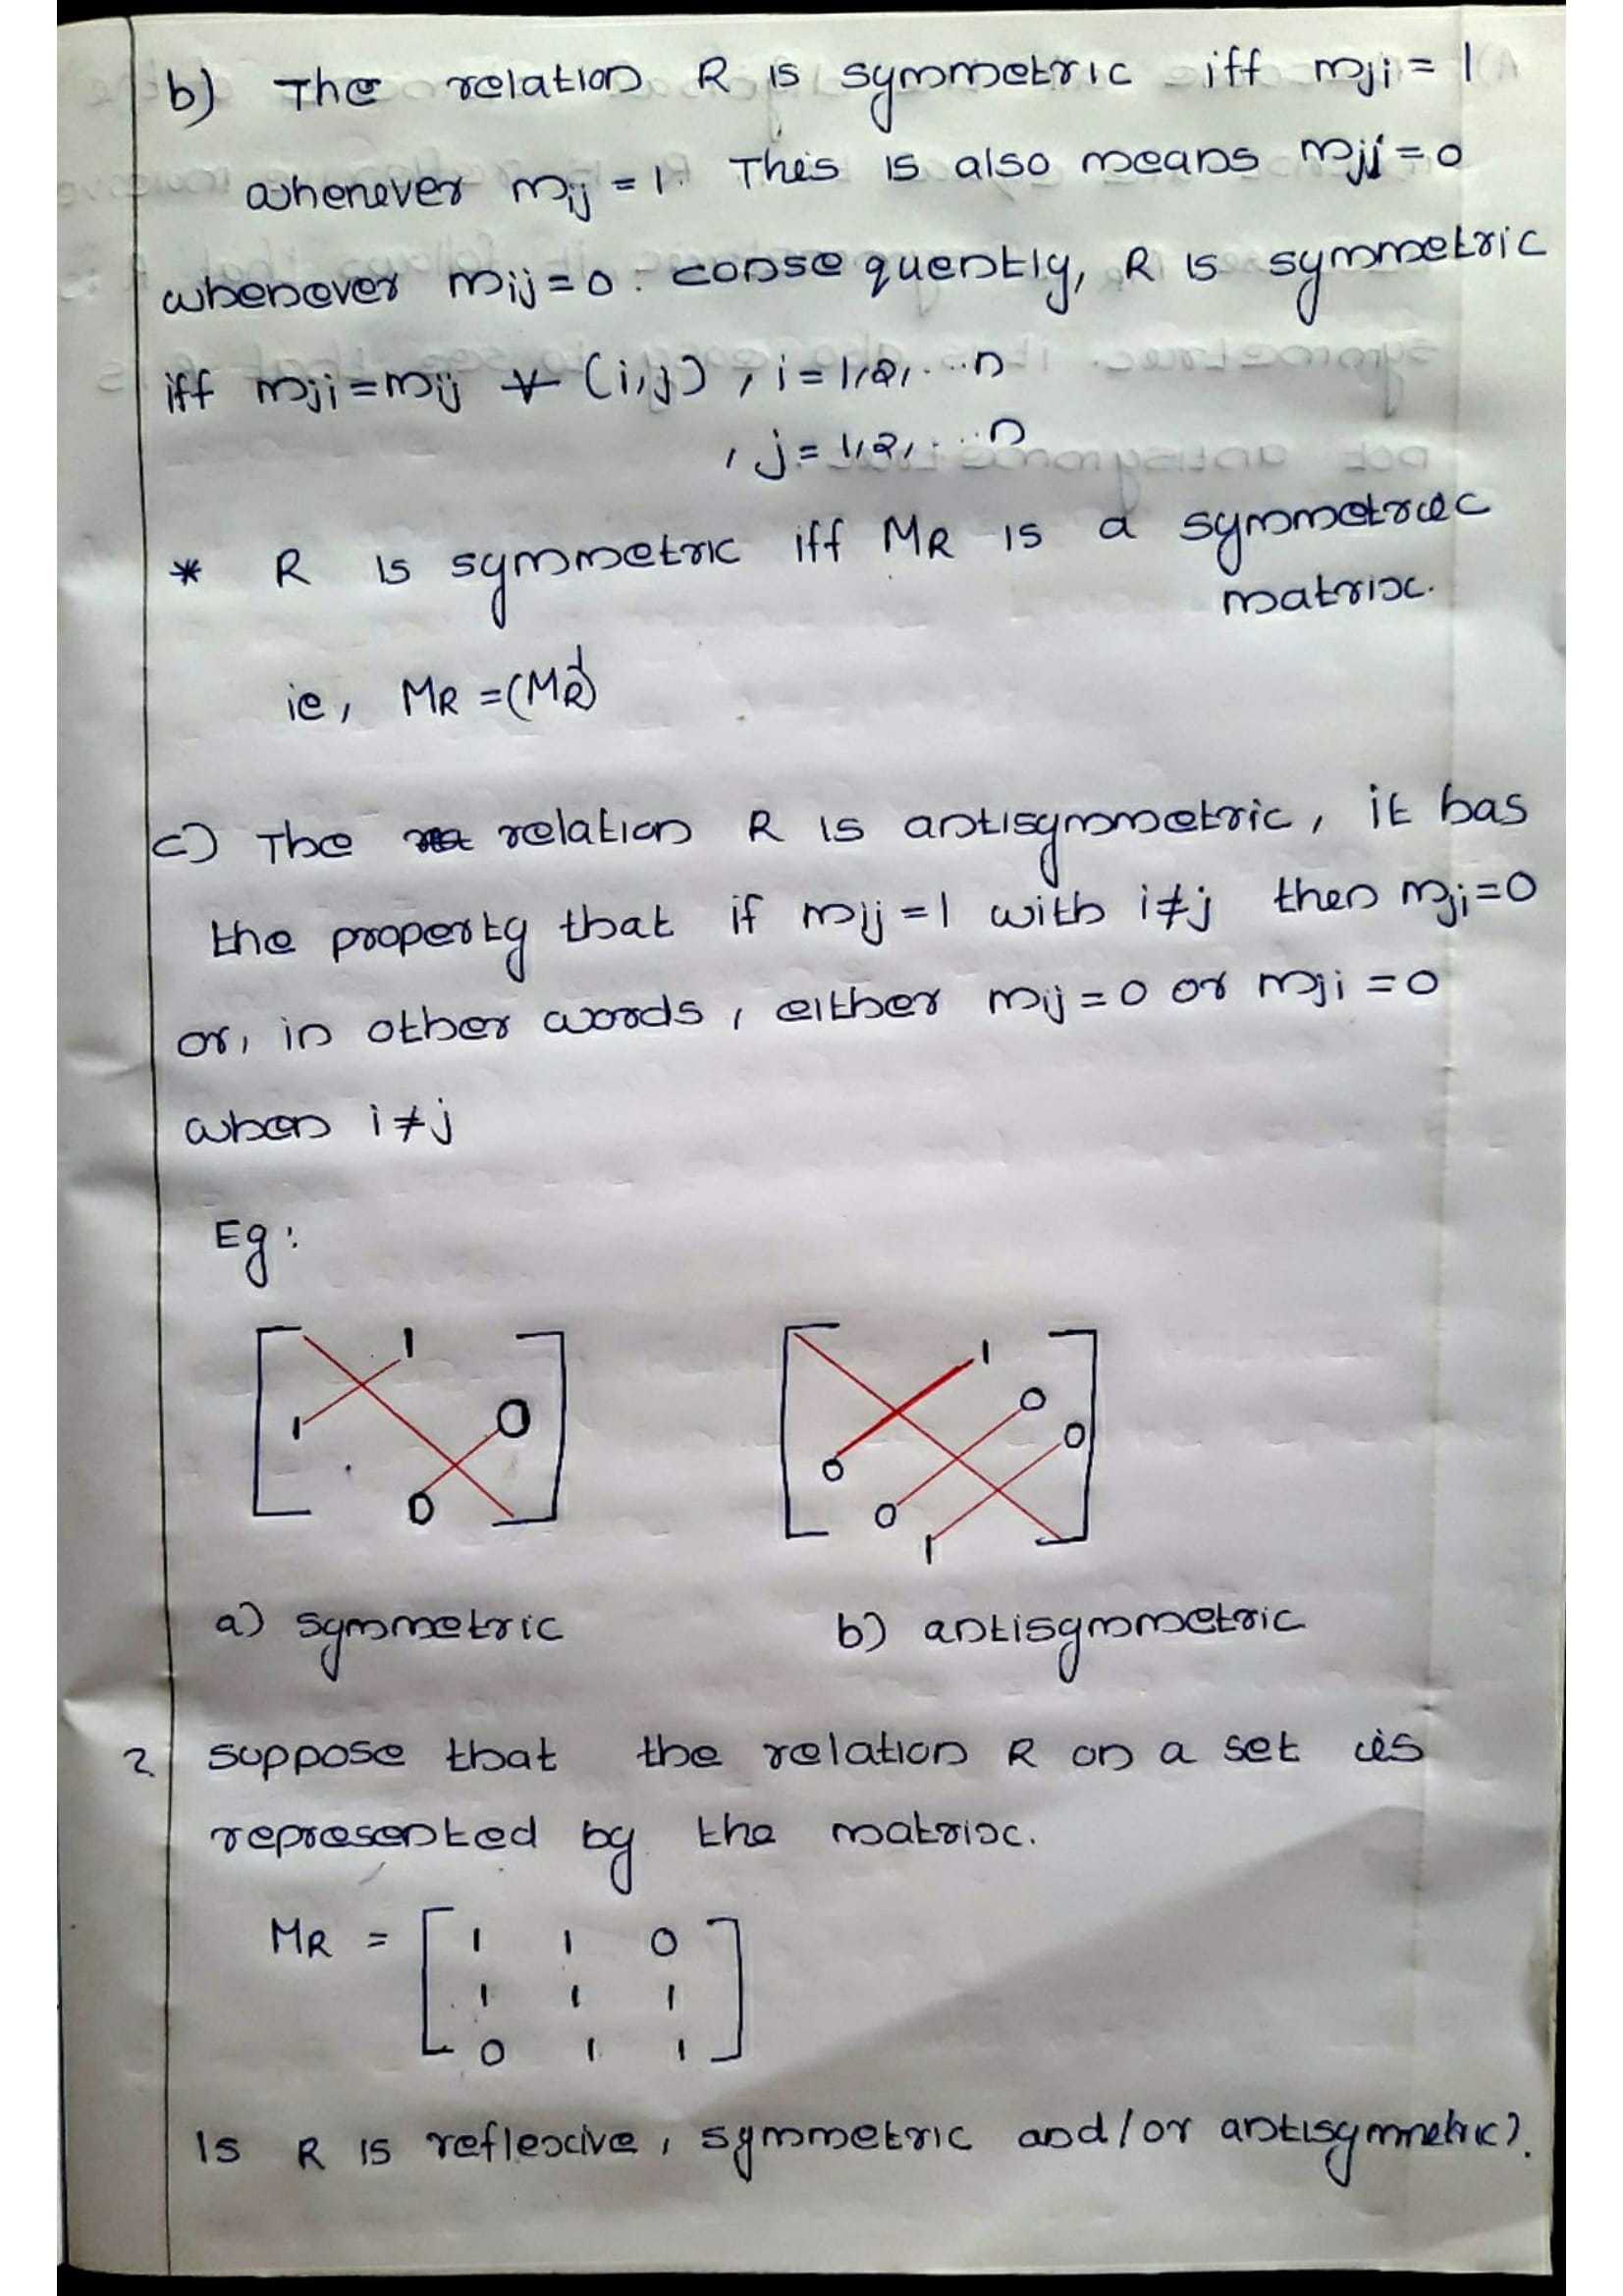 b) The relation R is symmetric iff mji = 1
whenever mij = 1. This is also means mji = 0
whenever mij = 0. consequently, R is symmetric
iff mji = mij ∀ (i,j), i = 1,2,...n
, j = 1,2,...n
* R is symmetric iff MR is a symmetric
matrix.
ie, MR = (MR)t
c) The relation R is antisymmetric, it has
the property that if mij = 1 with i≠j then mji = 0
or, in other words, either mij = 0 or mji = 0
when i≠j
Eg:
1 1
1 0 0 0
0 0 1
a) symmetric b) antisymmetric
? suppose that the relation R on a set is
represented by the matrix.
MR = [ 1 1 0
1 1 1
0 1 1 ]
Is R is reflexive, symmetric and/or antisymmetric?.